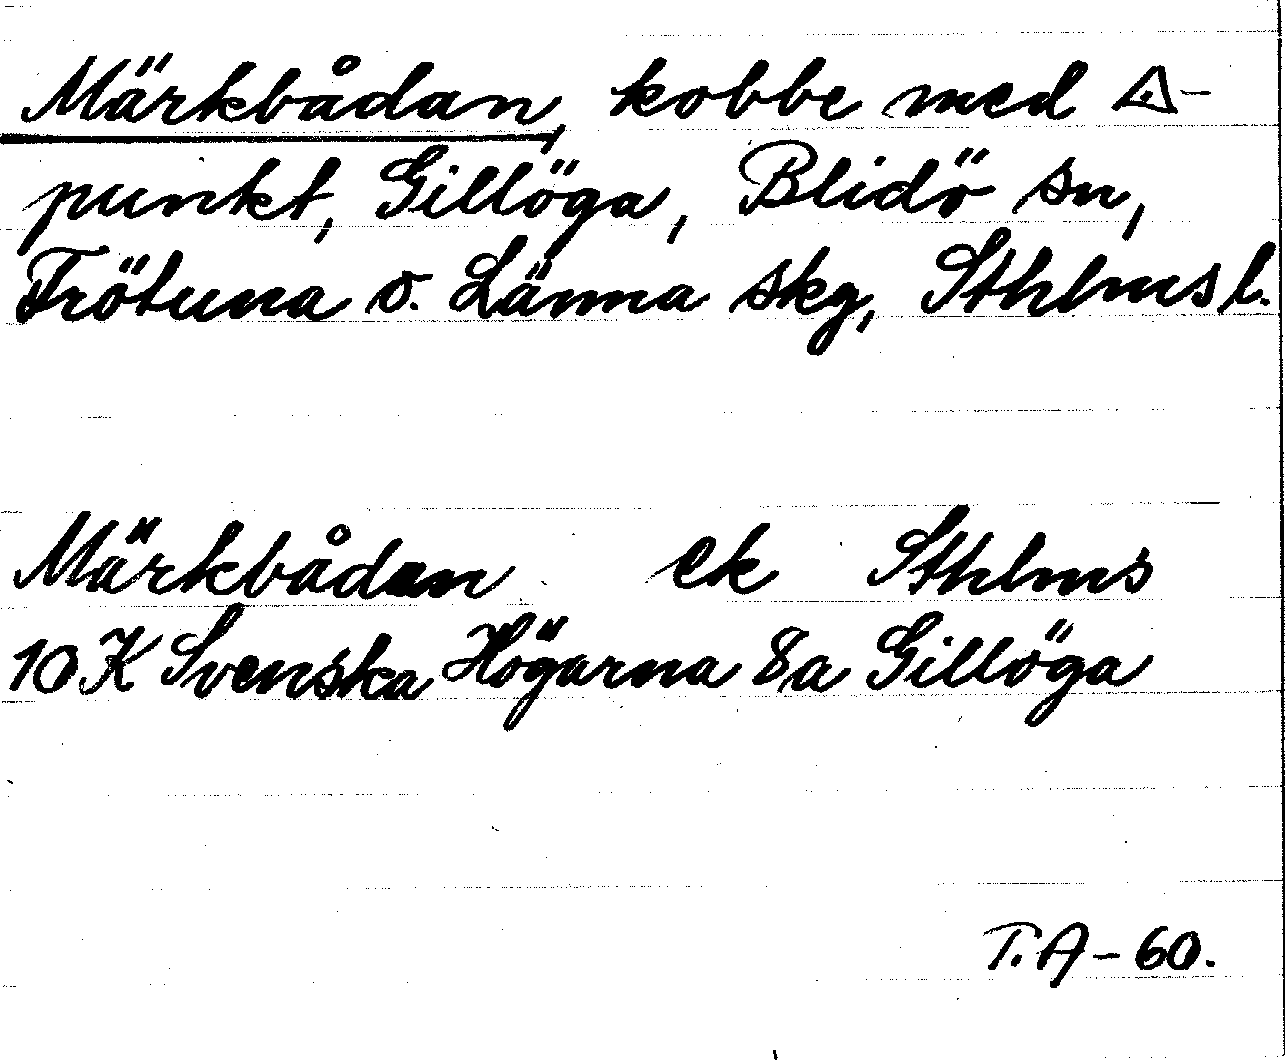 Märkbådan, kobbe med △-
punkt, Gillöga, Blidö sn,
Frötuna o. Länna skg, Sthlms l.
Märkbådan ek Sthlms
10K Svenska Högarna 8a Gillöga
T.A-60.